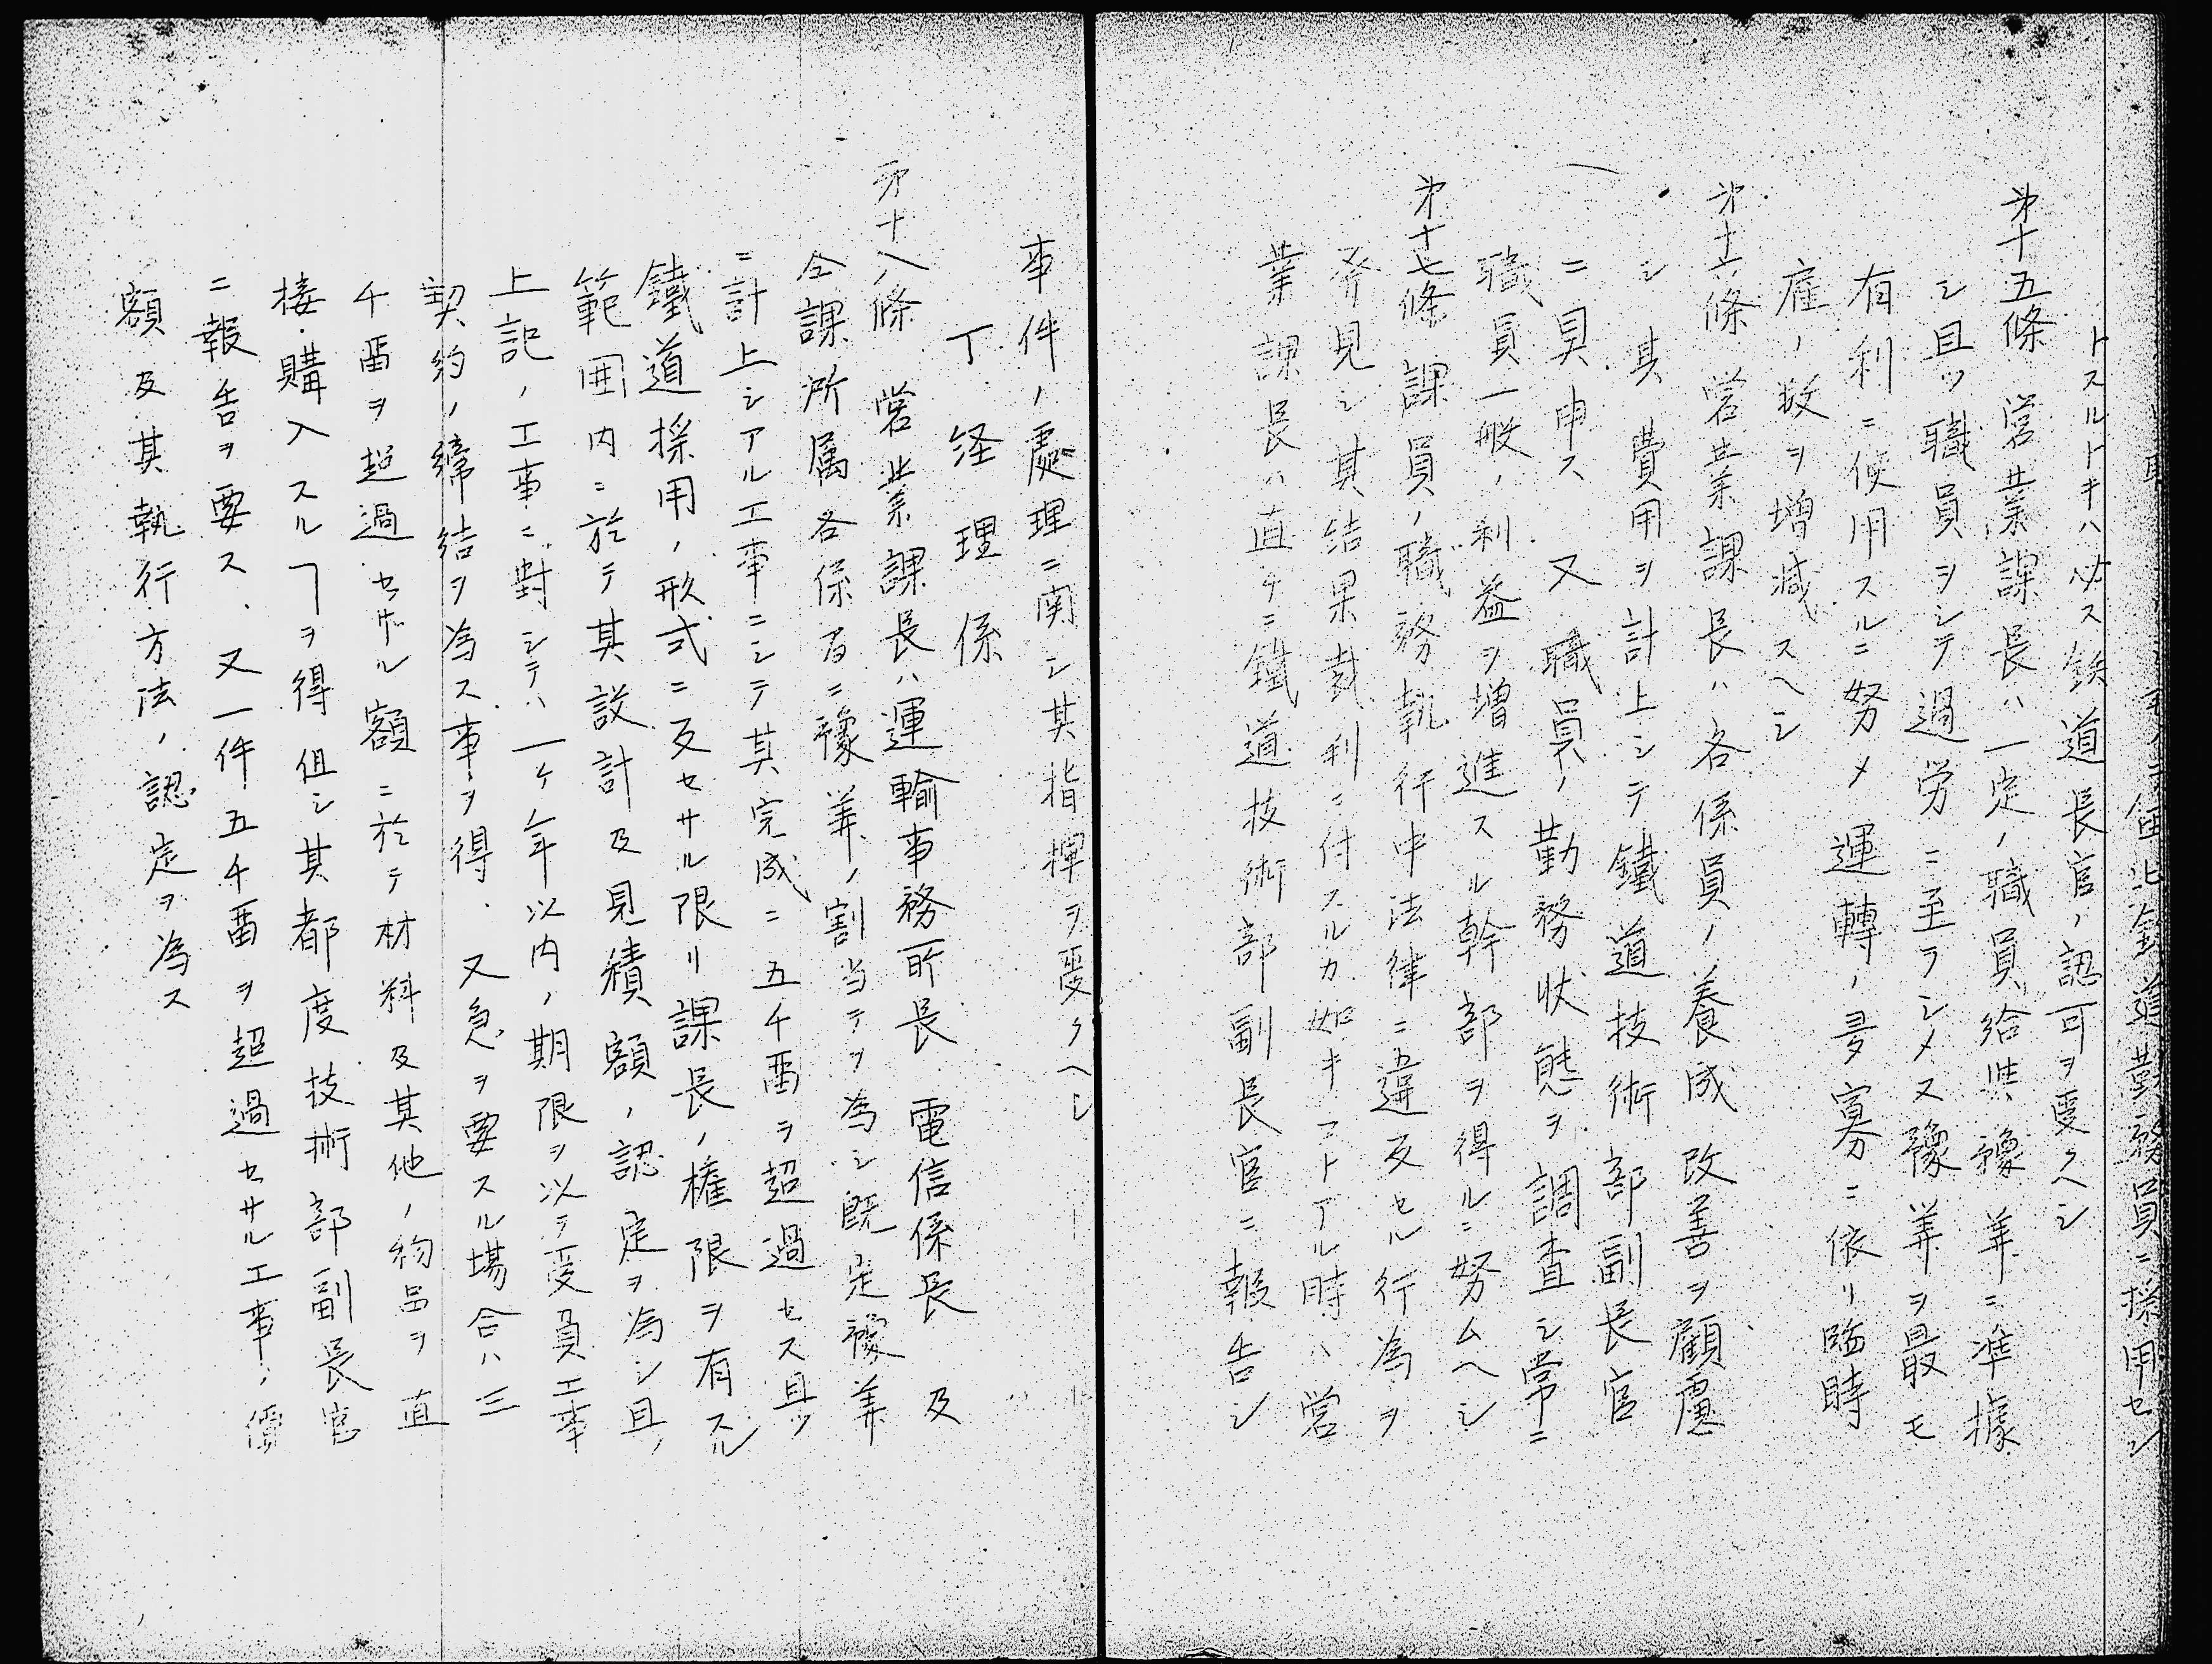 鉄道勤務員ニ採用セン
トスルトキハ必ス鉄道長官ノ認可ヲ受クヘシ
第十五條 営業課長ハ一定ノ職員給與豫算ニ準據
シ且ツ職員ヲシテ過労ニ至ラシメス豫算ヲ最モ
有利ニ使用スルニ努メ運轉ノ多寡ニ依リ臨時
雇ノ数ヲ増減スヘシ
第十六條 営業課長ハ各係員ノ養成改善ヲ顧慮
シ其費用ヲ計上シテ鐵道技術部副長官
ニ具申ス 又職員ノ勤務状態ヲ調査シ常ニ
職員一般ノ利益ヲ増進スル幹部ヲ得ルニ努ムヘシ
第十七條 課員ノ職務執行中法律ニ違反セル行為ヲ
発見シ其結果裁判ニ付スルカ如キコトアル時ハ営
業課長ハ直チニ鐵道技術部副長官ニ報告シ
事件ノ處理ニ関シ其指揮ヲ受クヘシ
丁 経理係
第十八條 営業課長ハ運輸事務所長 電信係長 及
仝課所属各係君ニ豫算ノ割当テヲ為シ既定豫算
ニ計上シアル工事ニシテ其完成ニ五千留ヲ超過セス且ツ
鐵道採用ノ形式ニ反セサル限リ課長ノ権限ヲ有スル
範囲内ニ於テ其設計及見積額ノ認定ヲ為シ且ノ
上記ノ工事ニ對シテハ一ケ年以内ノ期限ヲ以テ受負工事
契約ノ締結ヲ為ス事ヲ得 又急ヲ要スル場合ハ三
千留ヲ超過セサル額ニ於テ材料及其他ノ物品ヲ直
接購入スルヿヲ得但シ其都度技術部副長官
ニ報告ヲ要ス 又一件五千留ヲ超過セサル工事ノ價
額及其執行方法ノ認定ヲ為ス